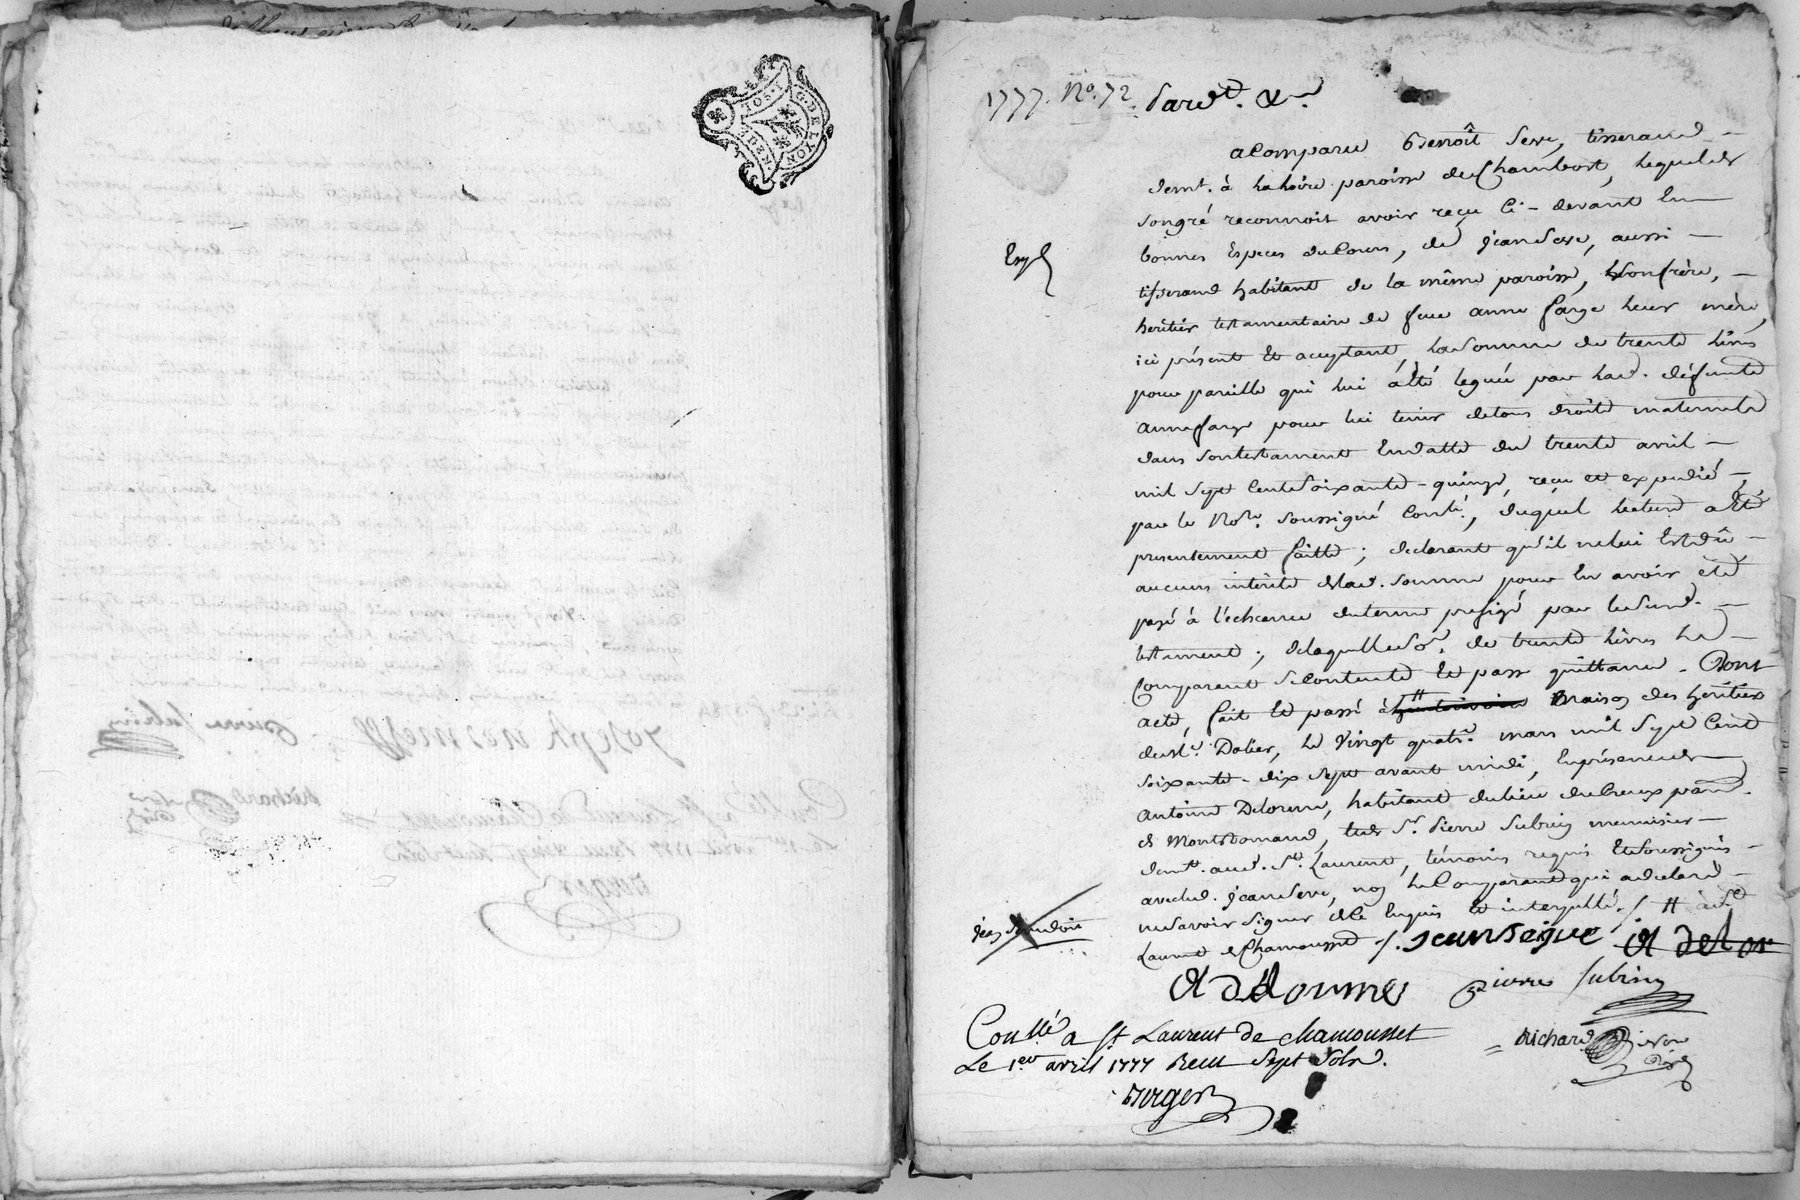 G. DE LYON
1. SOL.
DEN.
1777. No. 72 Pard.t &.a
a Comparu Benoît Seve, tisserand
dem.t à la loire paroisse de Chambost, lequel de
son gré reconnoit avoir reçu ci-devant En
bonnes Especes du Cours, de jean Seve, aussi
tisserand habitant de la même paroisse, son frère,
Exp.é
héritier testamentaire de feue anne farge leur mère,
ici présent et acceptant, la Somme de trente livres
pour pareille qui lui a été leguée par lad. défunte
anne farge pour lui tenir de tous droits maternels
dans son testament En datte du trente avril
mil sept Cent soixante-quinze, reçu et expedié
par le No.re soussigné Contlé., duquel lecture a été
presentement faitte; declarant qu'il ne lui Est dû
aucuns intérêts de lad. somme pour En avoir été
payé à l'échéance du terme prefigé par le susd.
testament; de laquelle So.e de trente livres le
Comparant Se contente et passe quittance. Dont
acte, fait et passé à # maison des héritiers
de s.r Dolier, le vingt quatr.e mars mil sept Cent
soixante-dix sept avant midi, En présence de
antoine Delorme, habitant du lieu du Creux par.sse
de Montromand, et de S.r Pierre Subrin menuisier
dem.t aud. St. Laurent, témoins requis Et soussignés
avec led. jean Seve, non le Comparant qui a declaré
ne savoir signer de ce Enquis et interpellé. / # à St.
Laurent de Chamousset /. jean seive A delor
A delorme pierre subrin
Con.llé a St. Laurent de chamousset
Le 1.er avril 1777 Recu Sept Sols.
Richard
Berger